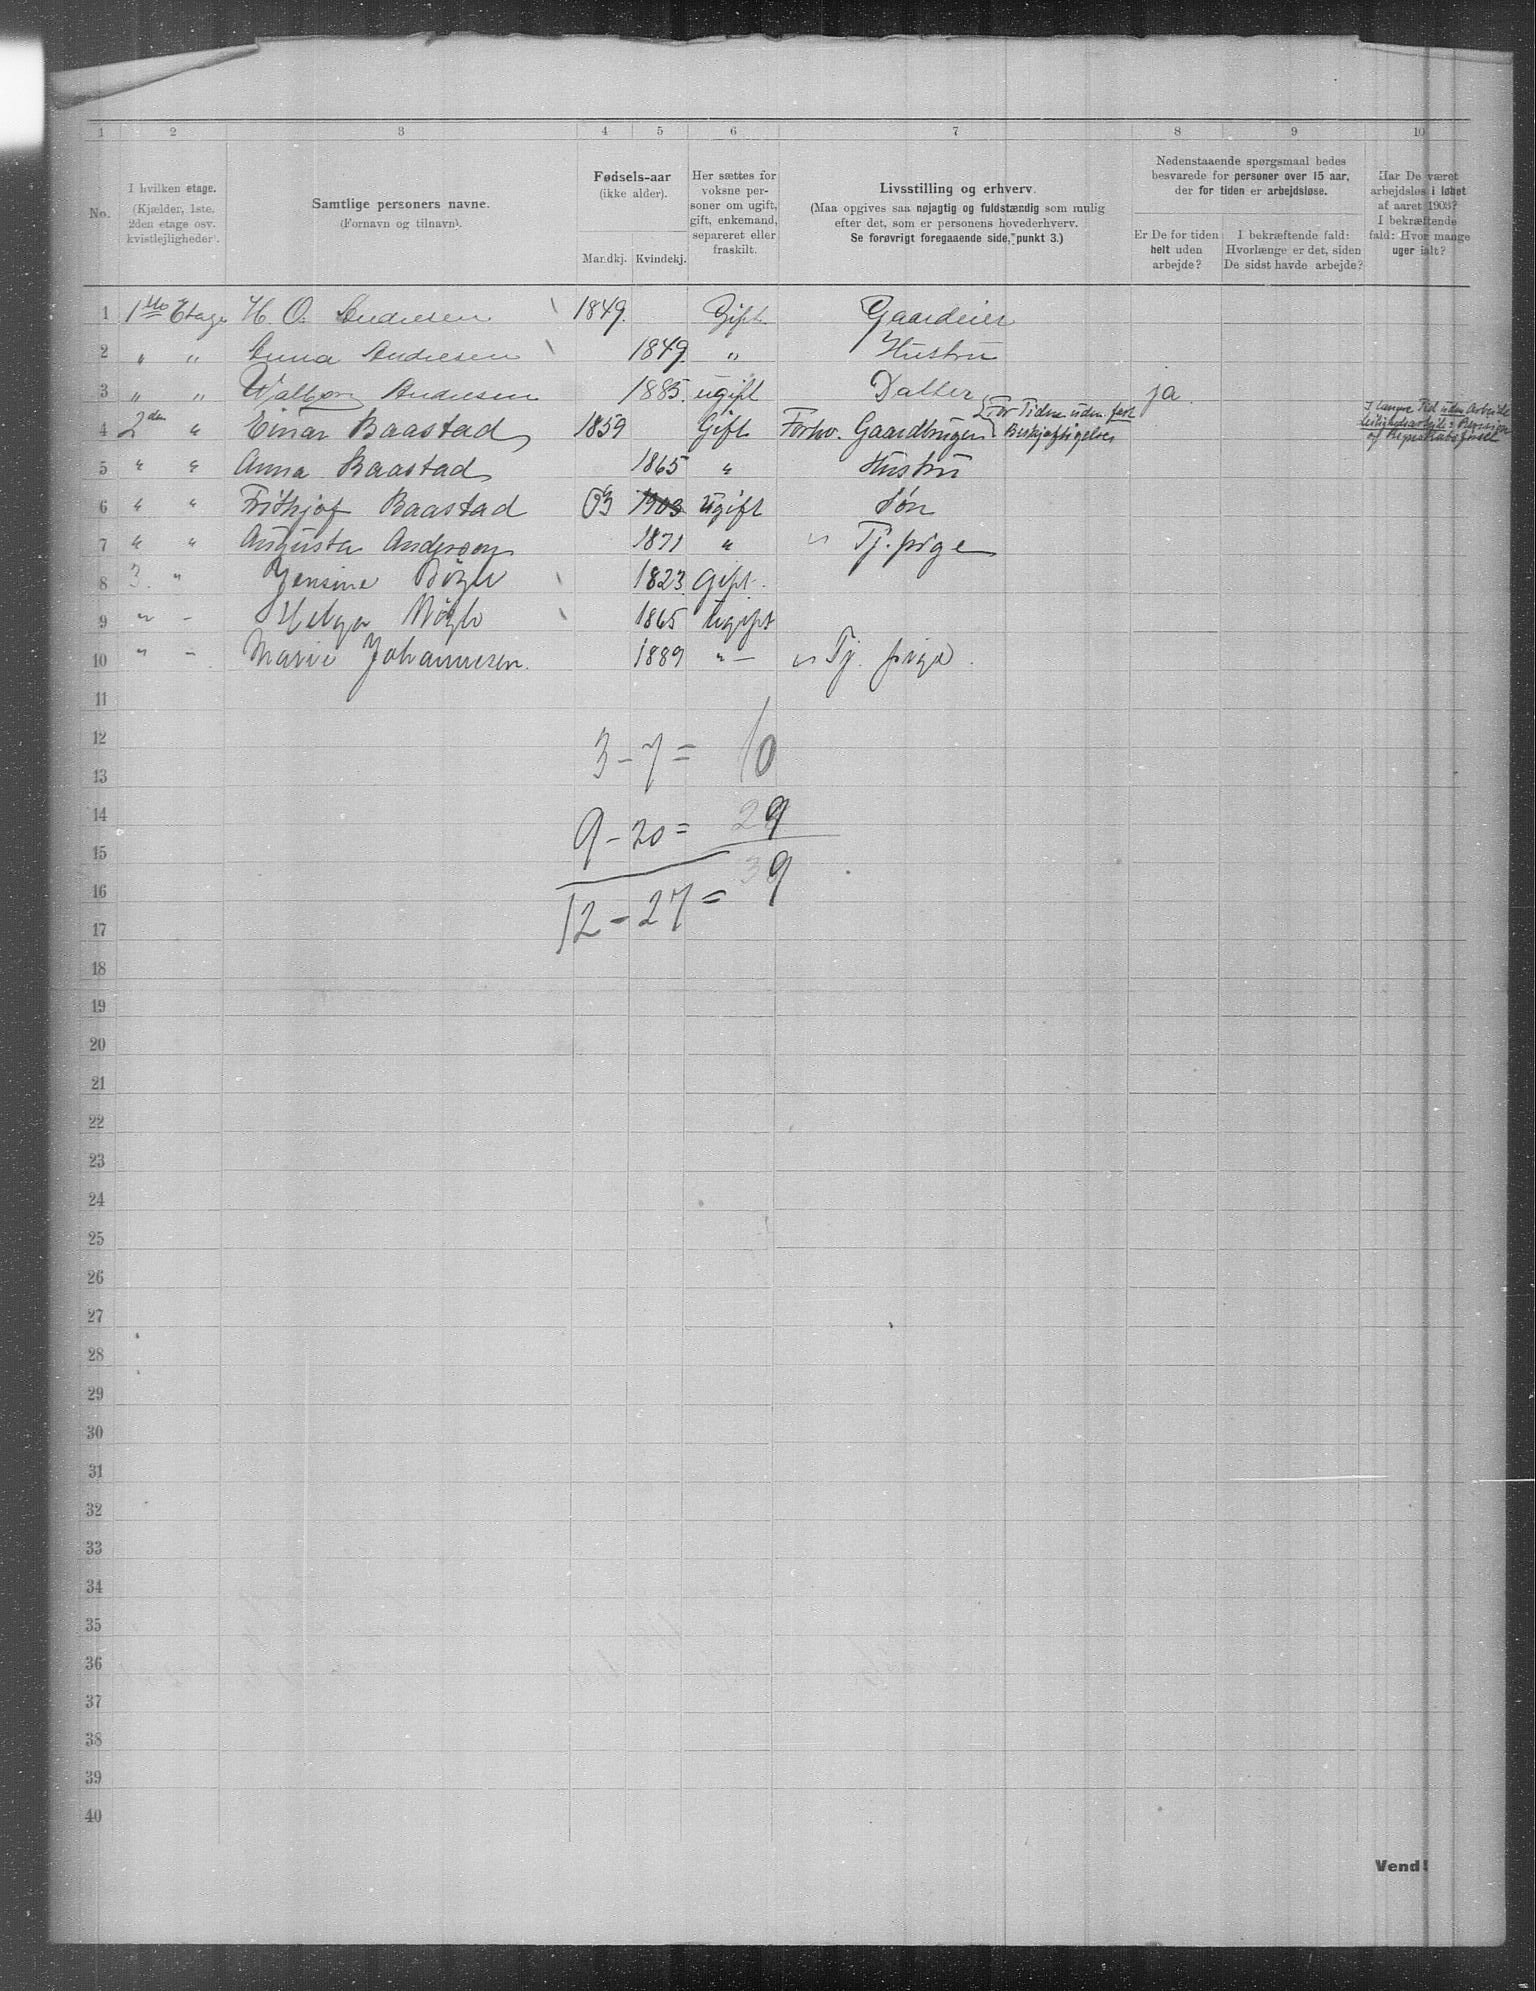 1 2 3 4 5 6 7 8 9 10
No.
I hvilken etage.
(Kjælder, 1ste,
2den etage osv.
kvistlejligheder).
Samtlige personers navne.
(Fornavn og tilnavn).
Fødsels-aar
(ikke alder).
Mandkj. Kvindekj.
Her sættes for
voksne per-
soner om ugift,
gift, enkemand,
separeret eller
fraskilt.
Livsstilling og erhverv.
(Maa opgives saa nøjagtig og fuldstændig som mulig
efter det, som er personens hovederhverv.
Se forøvrigt foregaaende side, punkt 3.)
Nedenstaaende spørgsmaal bedes
besvarede for personer over 15 aar,
der for tiden er arbejdsløse.
Er De for tiden
helt uden
arbejde?
I bekræftende fald:
Hvorlænge er det, siden
De sidst havde arbejde?
Har De været
arbejdsløs i løbet
af aaret 1903?
I bekræftende
fald: Hvor mange
uger ialt?
1 1ste Etage H. O. Andresen 1849. Gift Gaardeier
2 " " Anna Andresen 1849. " Hustru
3 " " Walborg Andresen 1885. ugift Datter ja.
4 2den " Einar Baastad 1859 Gift Forhv. Gaardbruger { For Tiden uden fast Beskjæftigelse
I længre Tid uden Arbeide
5 " " Anna Baastad 1865 " Hustru
6 " " Frithjof Baastad 03 1903 ugift Søn
7 " " Augusta Anderson 1871 " Tj. pige
8 3. " Jensine 1823. Gift.
9 " - Helga 1865 Ugift
10 " - Marie Johannesen. 1889 " - Tj. pige.
11
12 3 - 7 = 10
13
14 9 - 20 = 29
15
16 12 - 27 = 39
17
18
19
20
21
22
23
24
25
26
27
28
29
30
31
32
33
34
35
36
37
38
39
40
Vend!